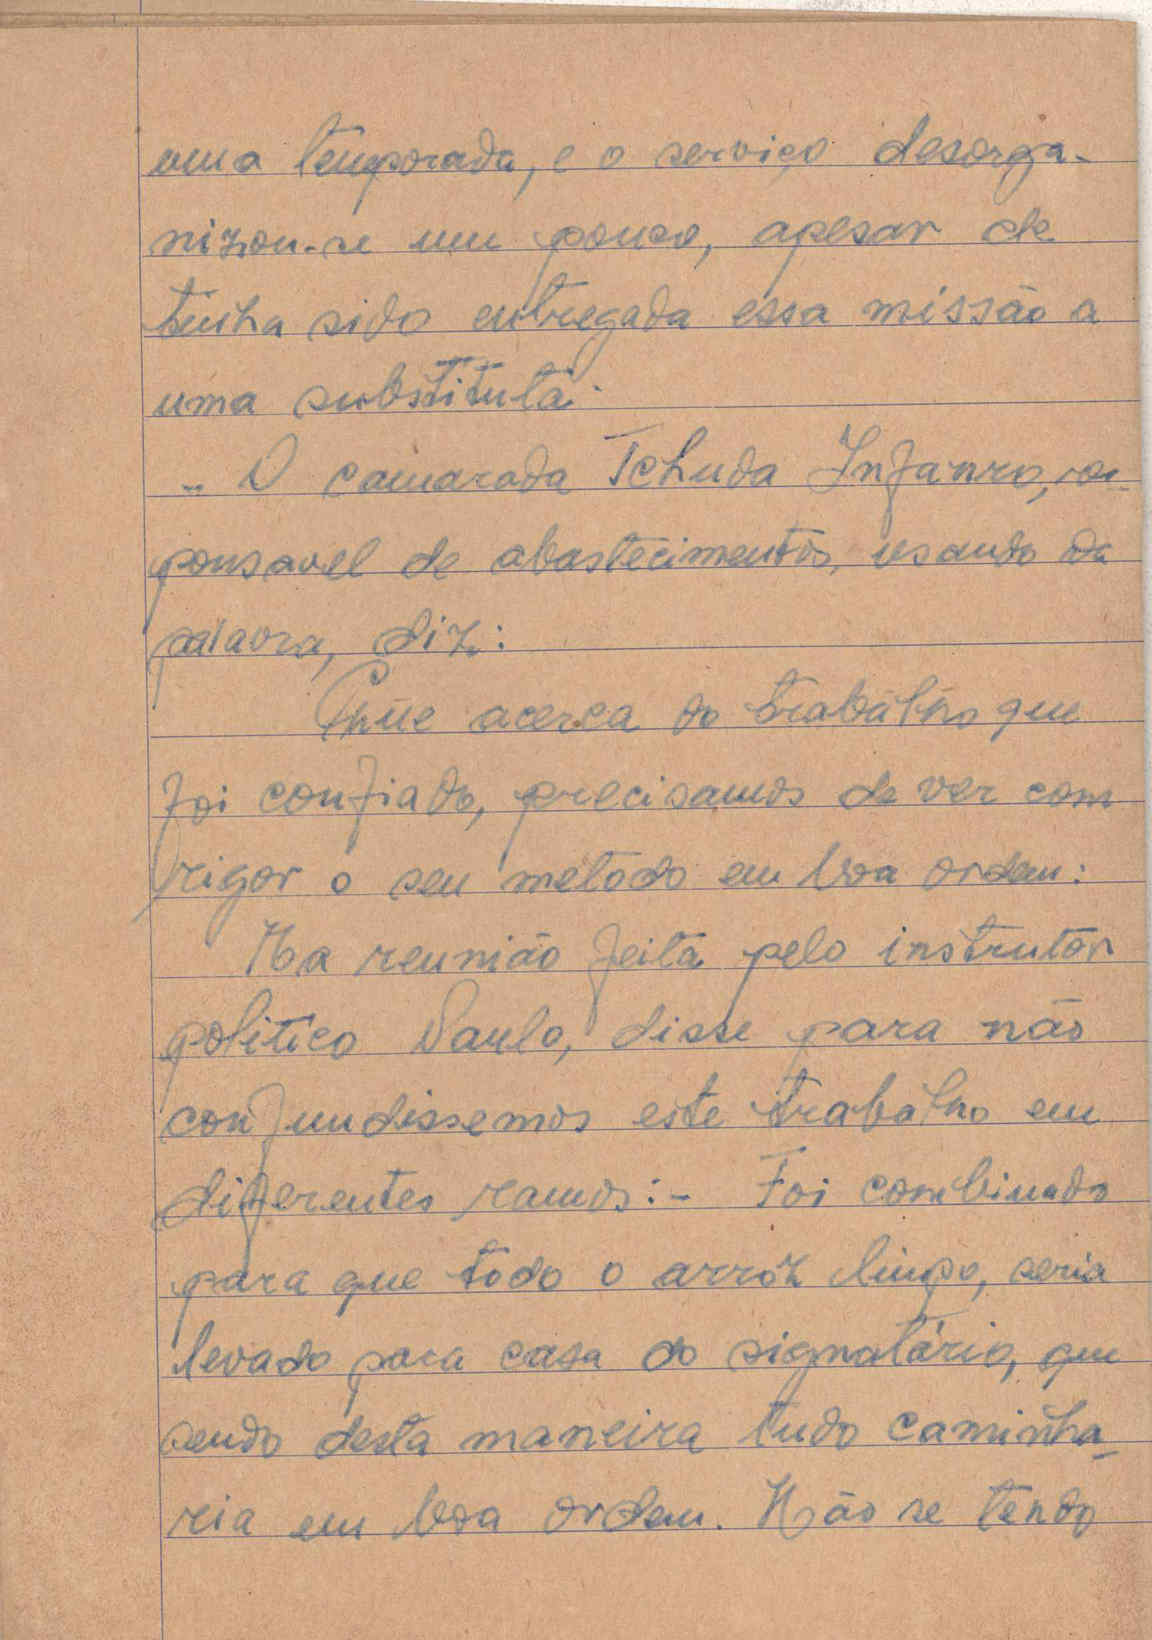 uma temporada, e o serviço desorga-
nizou-se um pouco, apesar de
tenha sido entregada essa missão a
uma substituta.
- O camarada Tchuda Infanro, res-
ponsavel de abastecimentos, usando da
palavra, diz:
Que acerca do trabalho que
foi confiado, precisamos de ver com
rigor o seu metodo em boa ordem:
Na reunião feita pelo instrutor
politico Paulo, disse para não
confundissemos este trabalho em
diferentes ramos:- Foi combinado
para que todo o arróz limpo, seria
levado para casa do signatário, que
sendo desta maneira tudo caminha-
ria em boa ordem. Não se tendo